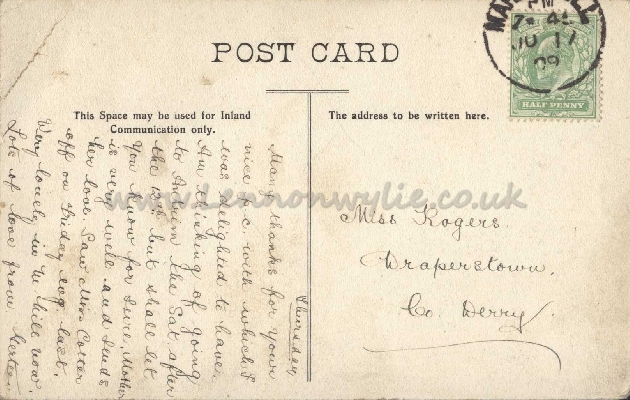 POST CARD
This Space may be used for Inland
Communication only.
The address to be written here.
HALF PENNY
PM
7- 45
17
09
www.Lennonwylie.co.uk
Thursday
Many thanks for your
nice p.c. with which I
was delighted to have.
Am thinking of going
to Antrim the Sat. after
the 12th but shall let
you know for sure. Mother
is very well and sends
her love. Saw Miss Cotter
off on Friday evg. last.
Very lovely in the hill now.
Lots of love from
Miss Rogers
Draperstown.
Co. Derry.